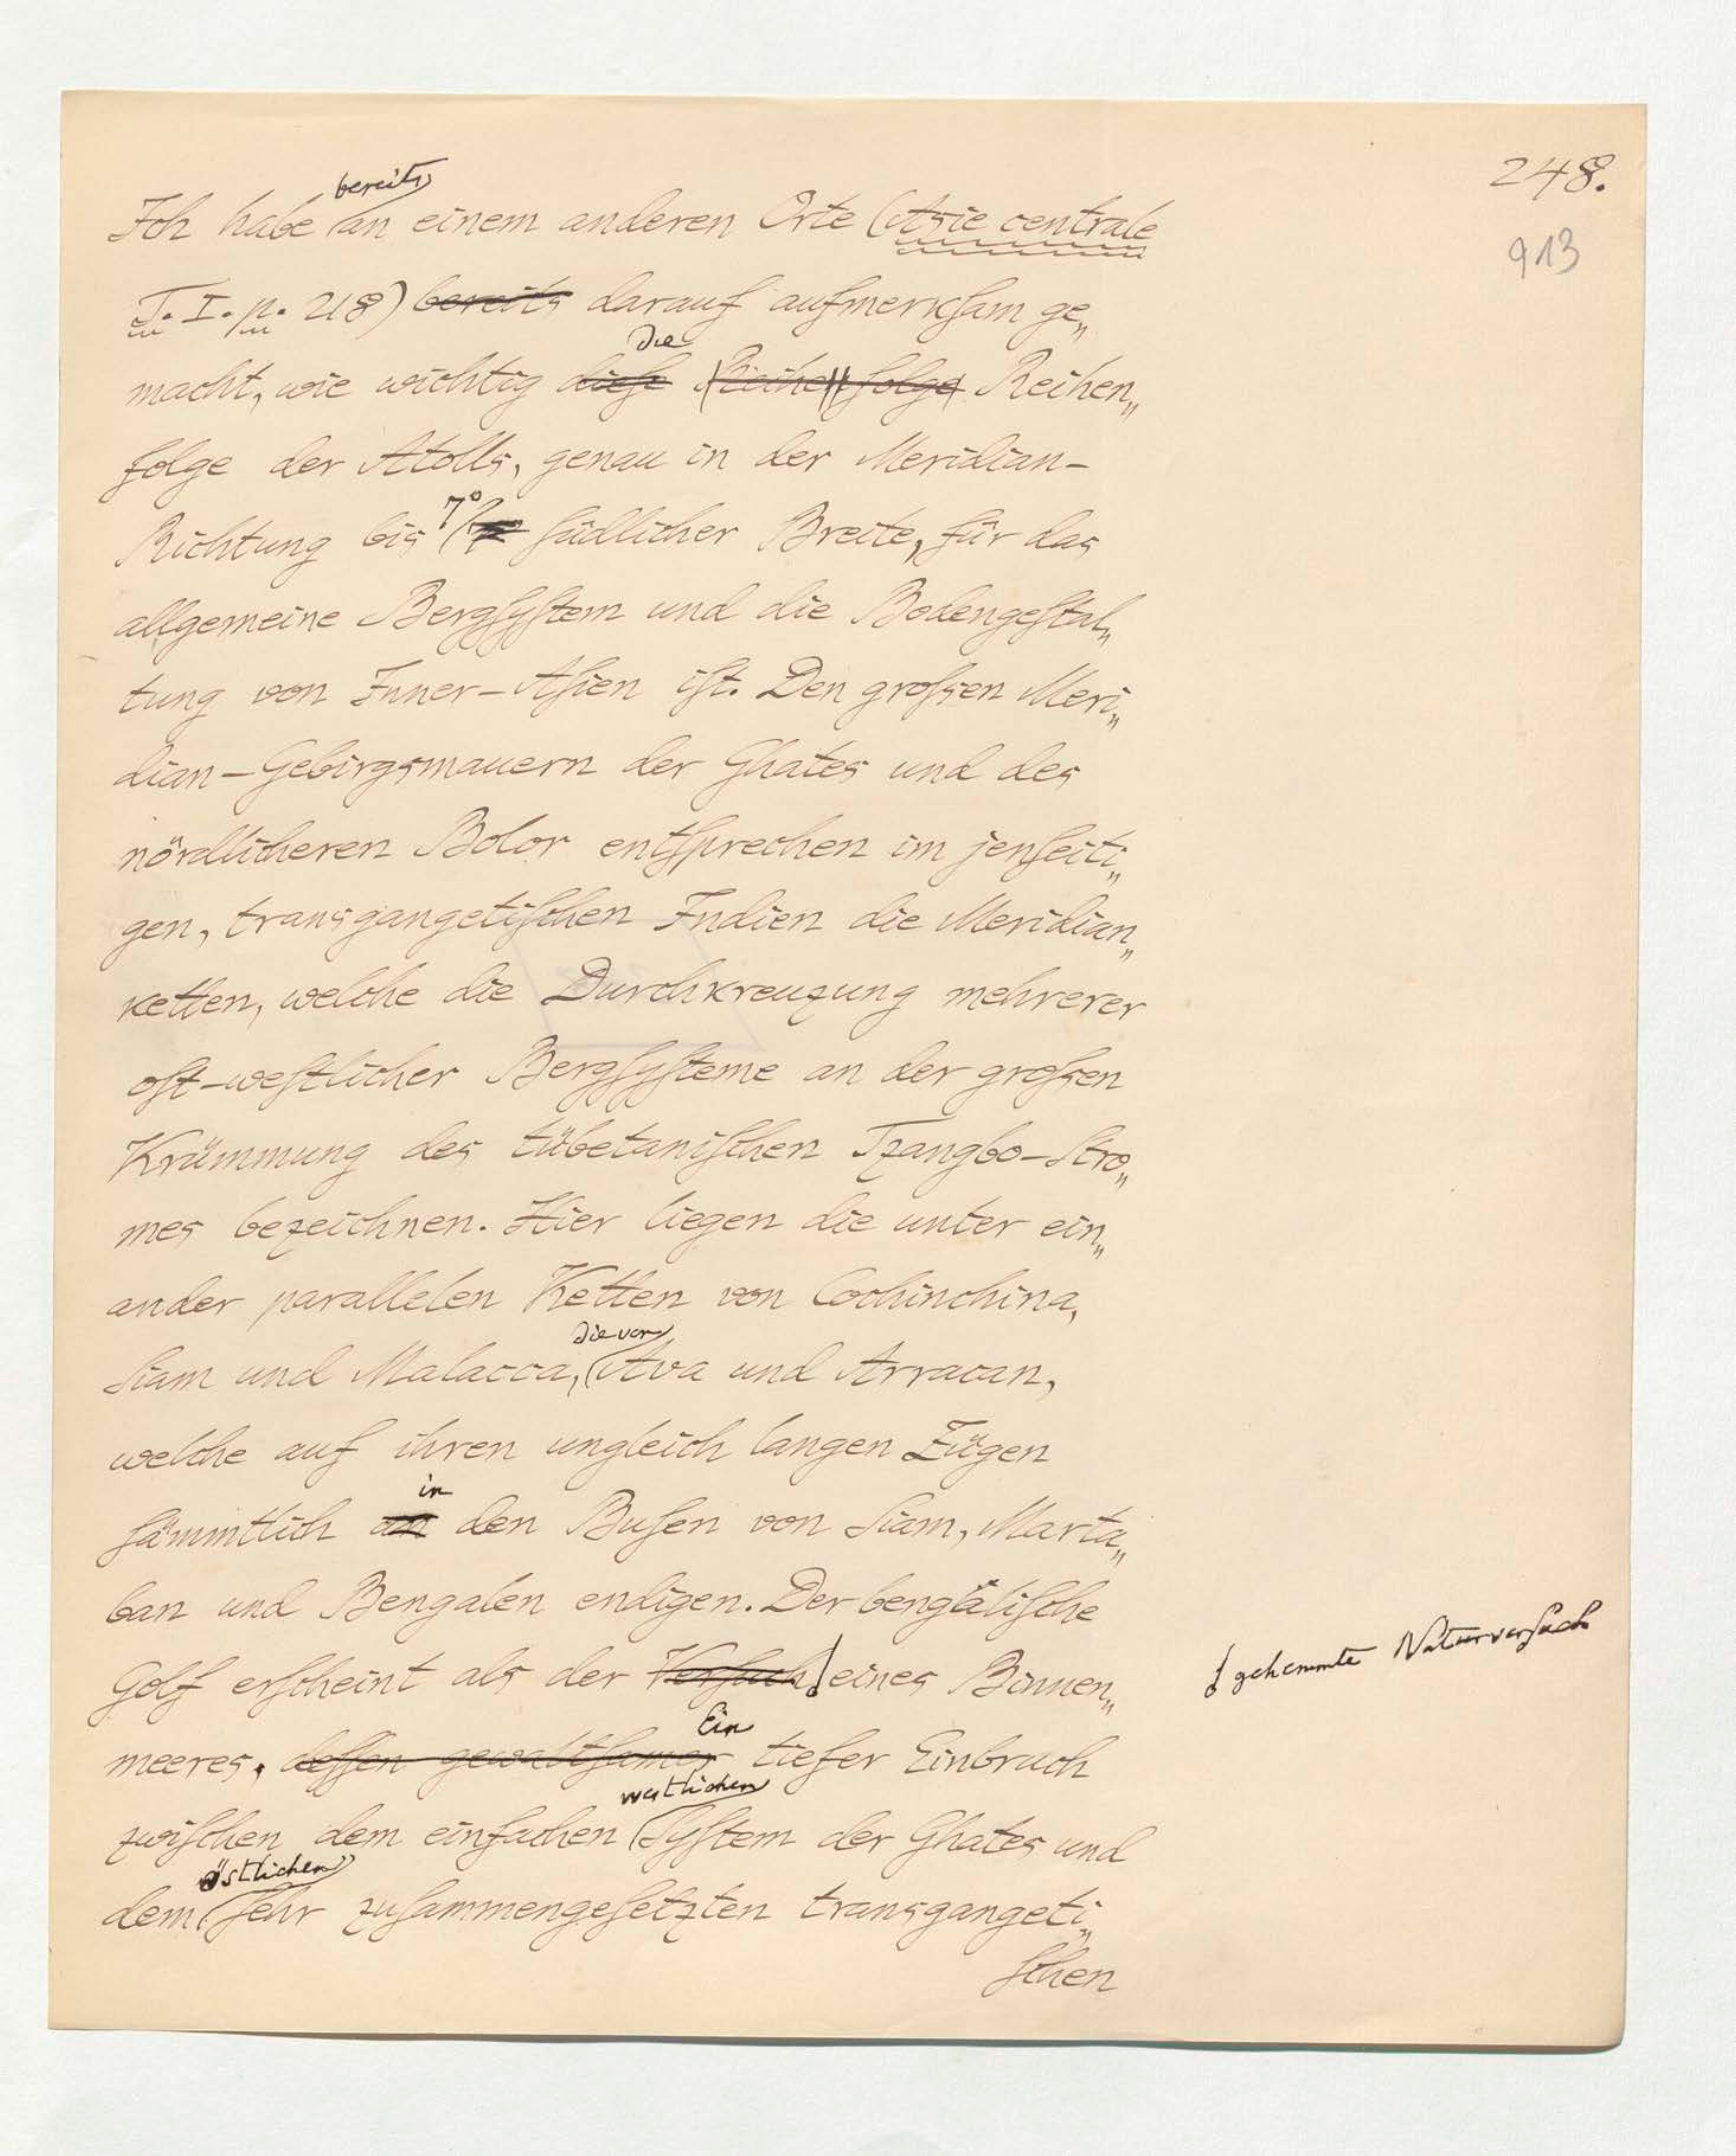 248.
913
bereits
Ich habe an einem anderen Orte (Asie centrale
T. I. p. 218) bereits darauf aufmerksam ge„
die
macht, wie wichtig diese Reihenfolge Reihen„
folge der Atolls, genau in der Meridian-
7°
Richtung bis südlicher Breite, für das
allgemeine Bergsystem und die Bodengestal„
tung von Inner-Asien ist. Den großen Meri„
dian-Gebirgsmauern der Ghates und des
nördlicheren Bolor entsprechen im jenseiti„
gen, transgangetischen Indien die Meridian„
ketten, welche die Durchkreuzung mehrerer
ost-westlicher Bergsysteme an der großen
Krümmung des tübetanischen Tzangbo-Stro„
mes bezeichnen. Hier liegen die unter ein„
ander parallelen Ketten von Cochinchina,
die von
Siam und Malacca, Ava und Arracan,
welche auf ihren ungleich langen Zügen
in
sämmtlich an den Busen von Siam, Marta„
ban und Bengalen endigen. Der bengälische
Golf erscheint als der Versuch eines Binnen„
gehemmte Naturversuch
Ein
meeres. dessen gewaltsamer tiefer Einbruch
westlichen
zwischen dem einfachen System der Ghates und
östlichen
dem sehr zusammengesetzten transgangeti„
schen